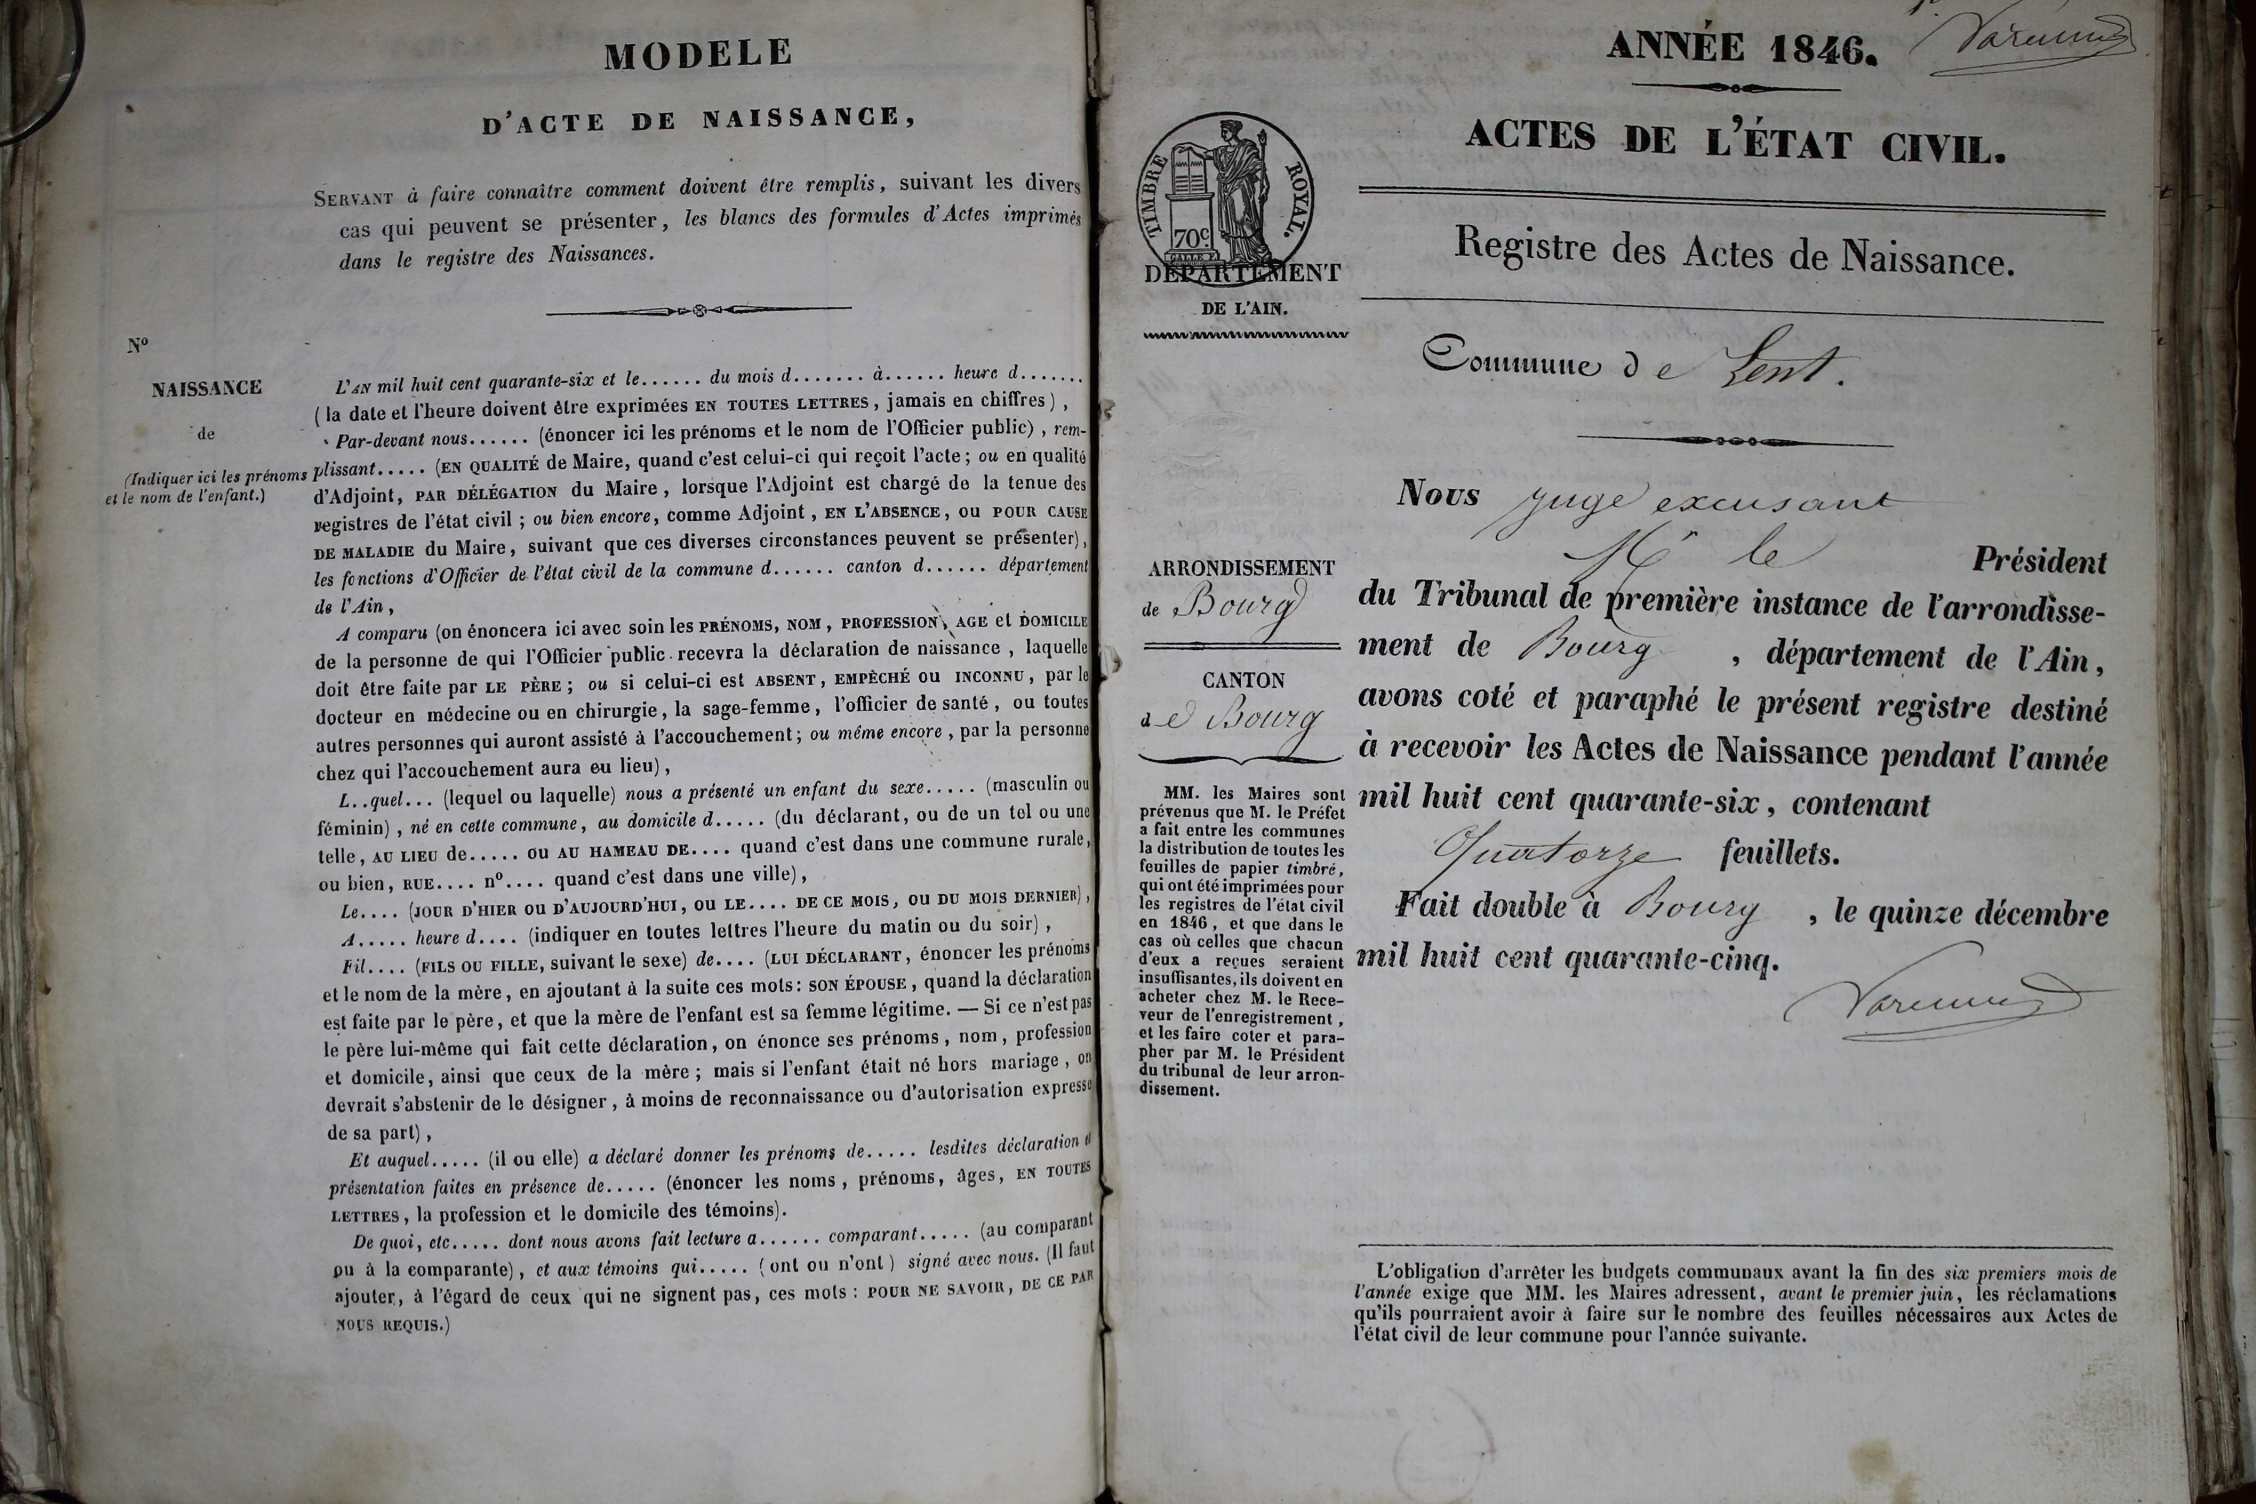 MODELE
D'ACTE DE NAISSANCE,
SERVANT à faire connaître comment doivent être remplis, suivant les divers
cas qui peuvent se présenter, les blancs des formules d'Actes imprimés
dans le registre des Naissances.
No
NAISSANCE
de
(Indiquer ici les prénoms
et le nom de l'enfant.)
L'AN mil huit cent quarante-six et le...... du mois d....... à...... heure d.......
(la date et l'heure doivent être exprimées EN TOUTES LETTRES, jamais en chiffres),
Par-devant nous...... (énoncer ici les prénoms et le nom de l'Officier public), rem-
plissant..... (EN QUALITÉ de Maire, quand c'est celui-ci qui reçoit l'acte; ou en qualité
d'Adjoint, PAR DÉLÉGATION du Maire, lorsque l'Adjoint est chargé de la tenue des
registres de l'état civil; ou bien encore, comme Adjoint, EN L'ABSENCE, OU POUR CAUSE
DE MALADIE du Maire, suivant que ces diverses circonstances peuvent se présenter),
les fonctions d'Officier de l'état civil de la commune d...... canton d...... département
de l'Ain,
A comparu (on énoncera ici avec soin les PRÉNOMS, NOM, PROFESSION, AGE et DOMICILE
de la personne de qui l'Officier public recevra la déclaration de naissance, laquelle
doit être faite par LE PÈRE; ou si celui-ci est ABSENT, EMPÊCHÉ ou INCONNU, par le
docteur en médecine ou en chirurgie, la sage-femme, l'officier de santé, ou toutes
autres personnes qui auront assisté à l'accouchement; ou même encore, par la personne
chez qui l'accouchement aura eu lieu),
L..quel... (lequel ou laquelle) nous a présenté un enfant du sexe..... (masculin ou
féminin), né en cette commune, au domicile d..... (du déclarant, ou de un tel ou une
telle, AU LIEU de..... OU AU HAMEAU DE.... quand c'est dans une commune rurale,
ou bien, RUE.... no.... quand c'est dans une ville),
Le.... (JOUR D'HIER OU D'AUJOURD'HUI, OU LE.... DE CE MOIS, OU DU MOIS DERNIER),
A..... heure d.... (indiquer en toutes lettres l'heure du matin ou du soir),
Fil.... (FILS OU FILLE, suivant le sexe) de.... (LUI DÉCLARANT, énoncer les prénoms
et le nom de la mère, en ajoutant à la suite ces mots: SON ÉPOUSE, quand la déclaration
est faite par le père, et que la mère de l'enfant est sa femme légitime. — Si ce n'est pas
le père lui-même qui fait cette déclaration, on énonce ses prénoms, nom, profession
et domicile, ainsi que ceux de la mère; mais si l'enfant était né hors mariage, on
devrait s'abstenir de le désigner, à moins de reconnaissance ou d'autorisation expresse
de sa part),
Et auquel..... (il ou elle) a déclaré donner les prénoms de..... lesdites déclaration et
présentation faites en présence de..... (énoncer les noms, prénoms, âges, EN TOUTES
LETTRES, la profession et le domicile des témoins).
De quoi, etc..... dont nous avons fait lecture a...... comparant..... (au comparant
ou à la comparante), et aux témoins qui..... (ont ou n'ont) signé avec nous. (Il faut
ajouter, à l'égard de ceux qui ne signent pas, ces mots: POUR NE SAVOIR, DE CE PAR
NOUS REQUIS.)
ANNÉE 1846.
ACTES DE L'ÉTAT CIVIL.
TIMBRE ROYAL.
70c
DÉPARTEMENT
DE L'AIN.
Registre des Actes de Naissance.
Commune de Lent.
Nous juge excusant
Mr le Président
du Tribunal de première instance de l'arrondisse-
ment de Bourg, département de l'Ain,
avons coté et paraphé le présent registre destiné
à recevoir les Actes de Naissance pendant l'année
mil huit cent quarante-six, contenant
Quatorze feuillets.
Fait double à Bourg, le quinze décembre
mil huit cent quarante-cinq.
ARRONDISSEMENT
de Bourg
CANTON
de Bourg
MM. les Maires sont
prévenus que M. le Préfet
a fait entre les communes
la distribution de toutes les
feuilles de papier timbré,
qui ont été imprimées pour
les registres de l'état civil
en 1846, et que dans le
cas où celles que chacun
d'eux a reçues seraient
insuffisantes, ils doivent en
acheter chez M. le Rece-
veur de l'enregistrement,
et les faire coter et para-
pher par M. le Président
du tribunal de leur arron-
dissement.
L'obligation d'arrêter les budgets communaux avant la fin des six premiers mois de
l'année exige que MM. les Maires adressent, avant le premier juin, les réclamations
qu'ils pourraient avoir à faire sur le nombre des feuilles nécessaires aux Actes de
l'état civil de leur commune pour l'année suivante.